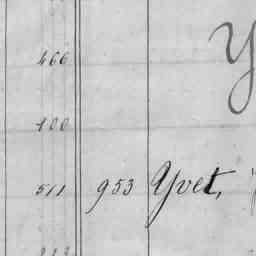 Y
466
100
511 953 Yvet,